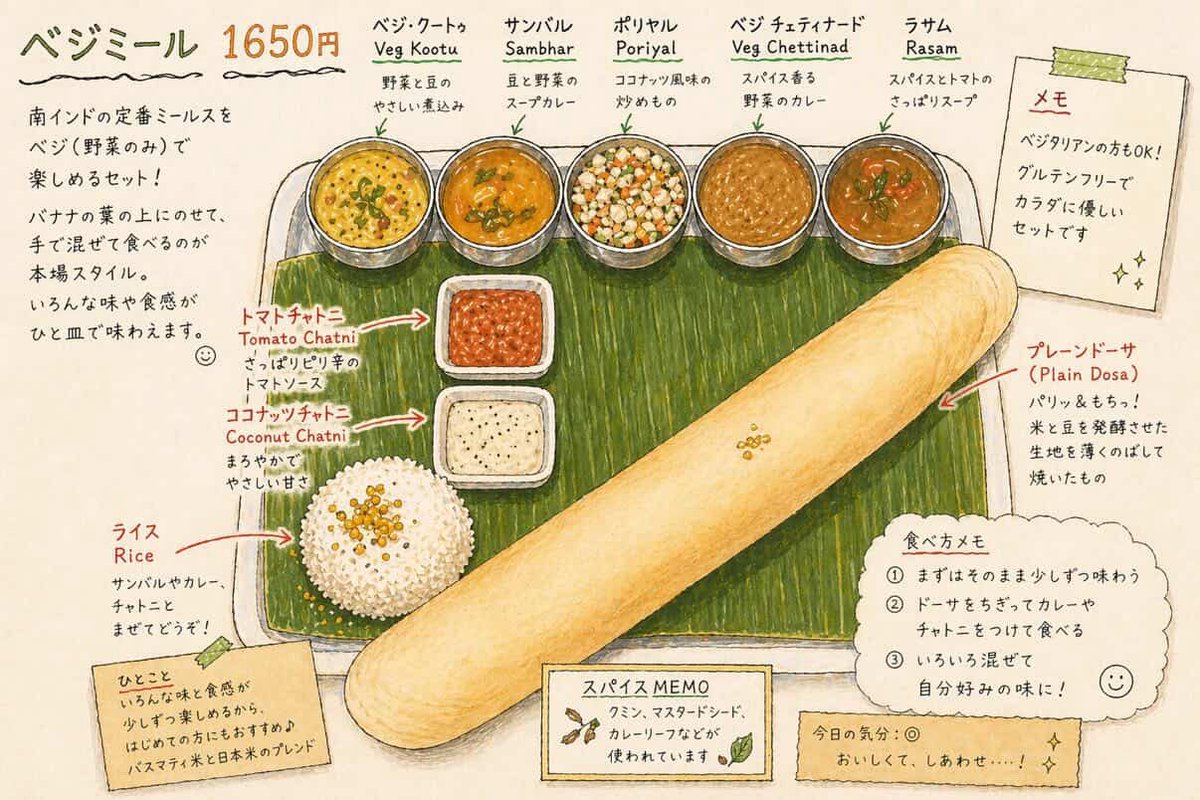 ベジミール 1650円
南インドの定番ミールスを
ベジ(野菜のみ)で
楽しめるセット!
バナナの葉の上にのせて、
手で混ぜて食べるのが
本場スタイル。
いろんな味や食感が
ひと皿で味わえます。
ベジ・クートゥ
Veg Kootu
野菜と豆の
やさしい煮込み
サンバル
Sambhar
豆と野菜の
スープカレー
ポリヤル
Poriyal
ココナッツ風味の
炒めもの
ベジ チェティナード
Veg Chettinad
スパイス香る
野菜のカレー
ラサム
Rasam
スパイスとトマトの
さっぱりスープ
メモ
ベジタリアンの方もOK!
グルテンフリーで
カラダに優しい
セットです
トマトチャトニ
Tomato Chatni
さっぱりピリ辛の
トマトソース
ココナッツチャトニ
Coconut Chatni
まろやかで
やさしい甘さ
プレーンドーサ
(Plain Dosa)
パリッ&もちっ!
米と豆を発酵させた
生地を薄くのばして
焼いたもの
ライス
Rice
サンバルやカレー、
チャトニと
まぜてどうぞ!
食べ方メモ
① まずはそのまま少しずつ味わう
② ドーサをちぎってカレーや
チャトニをつけて食べる
③ いろいろ混ぜて
自分好みの味に!
ひとこと
いろんな味と食感が
少しずつ楽しめるから、
はじめての方にもおすすめ♪
バスマティ米と日本米のブレンド
スパイスMEMO
クミン、マスタードシード、
カレーリーフなどが
使われています
今日の気分:◎
おいしくて、しあわせ‥‥!